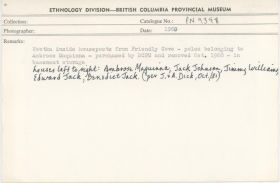 ETHNOLOGY DIVISION—BRITISH COLUMBIA PROVINCIAL MUSEUM
Collection: Catalogue No.: PN 9398
Photographer: Date: 1968
Remarks:
Nootka inside houseposts from Friendly Cove - poles belonging to
Ambrose Maquinna - purchased by BCPM and removed Oct. 1968 - in
basement storage
houses left to right: Ambrose Maquinna, Jack Johnson, Jimmy Williams,
Edward Jack, Benedict Jack. (per J.+A. Dick, Oct/81)